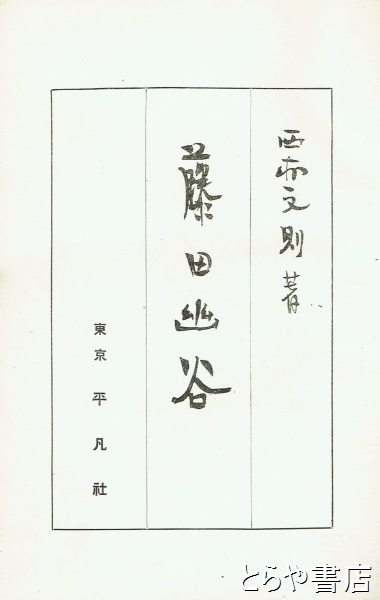 西村文則著
藤田幽谷
東京 平凡社
とらや書店